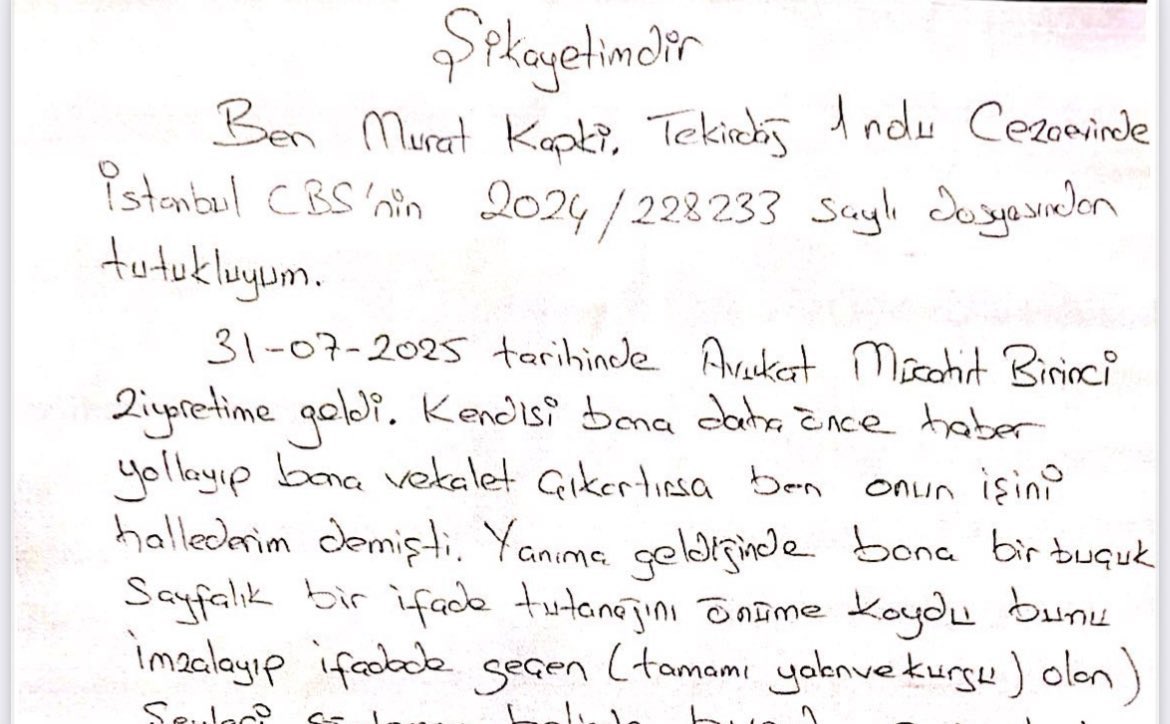 Şikayetimdir
Ben Murat Kapki. Tekirdağ 1 nolu Cezaevinde
İstanbul CBS'nin 2024/228233 saylı dosyasından
tutukluyum.
31-07-2025 tarihinde Avukat Mücahit Birinci
Ziyaretime geldi. Kendisi bana daha önce haber
yollayıp bana vekalet çıkartırsa ben onun işini
hallederim demişti. Yanıma geldiğinde bana bir buçuk
Sayfalık bir ifade tutanağını önüme koydu bunu
imzalayıp ifadede geçen (tamamı yalan ve kurgu) olan)